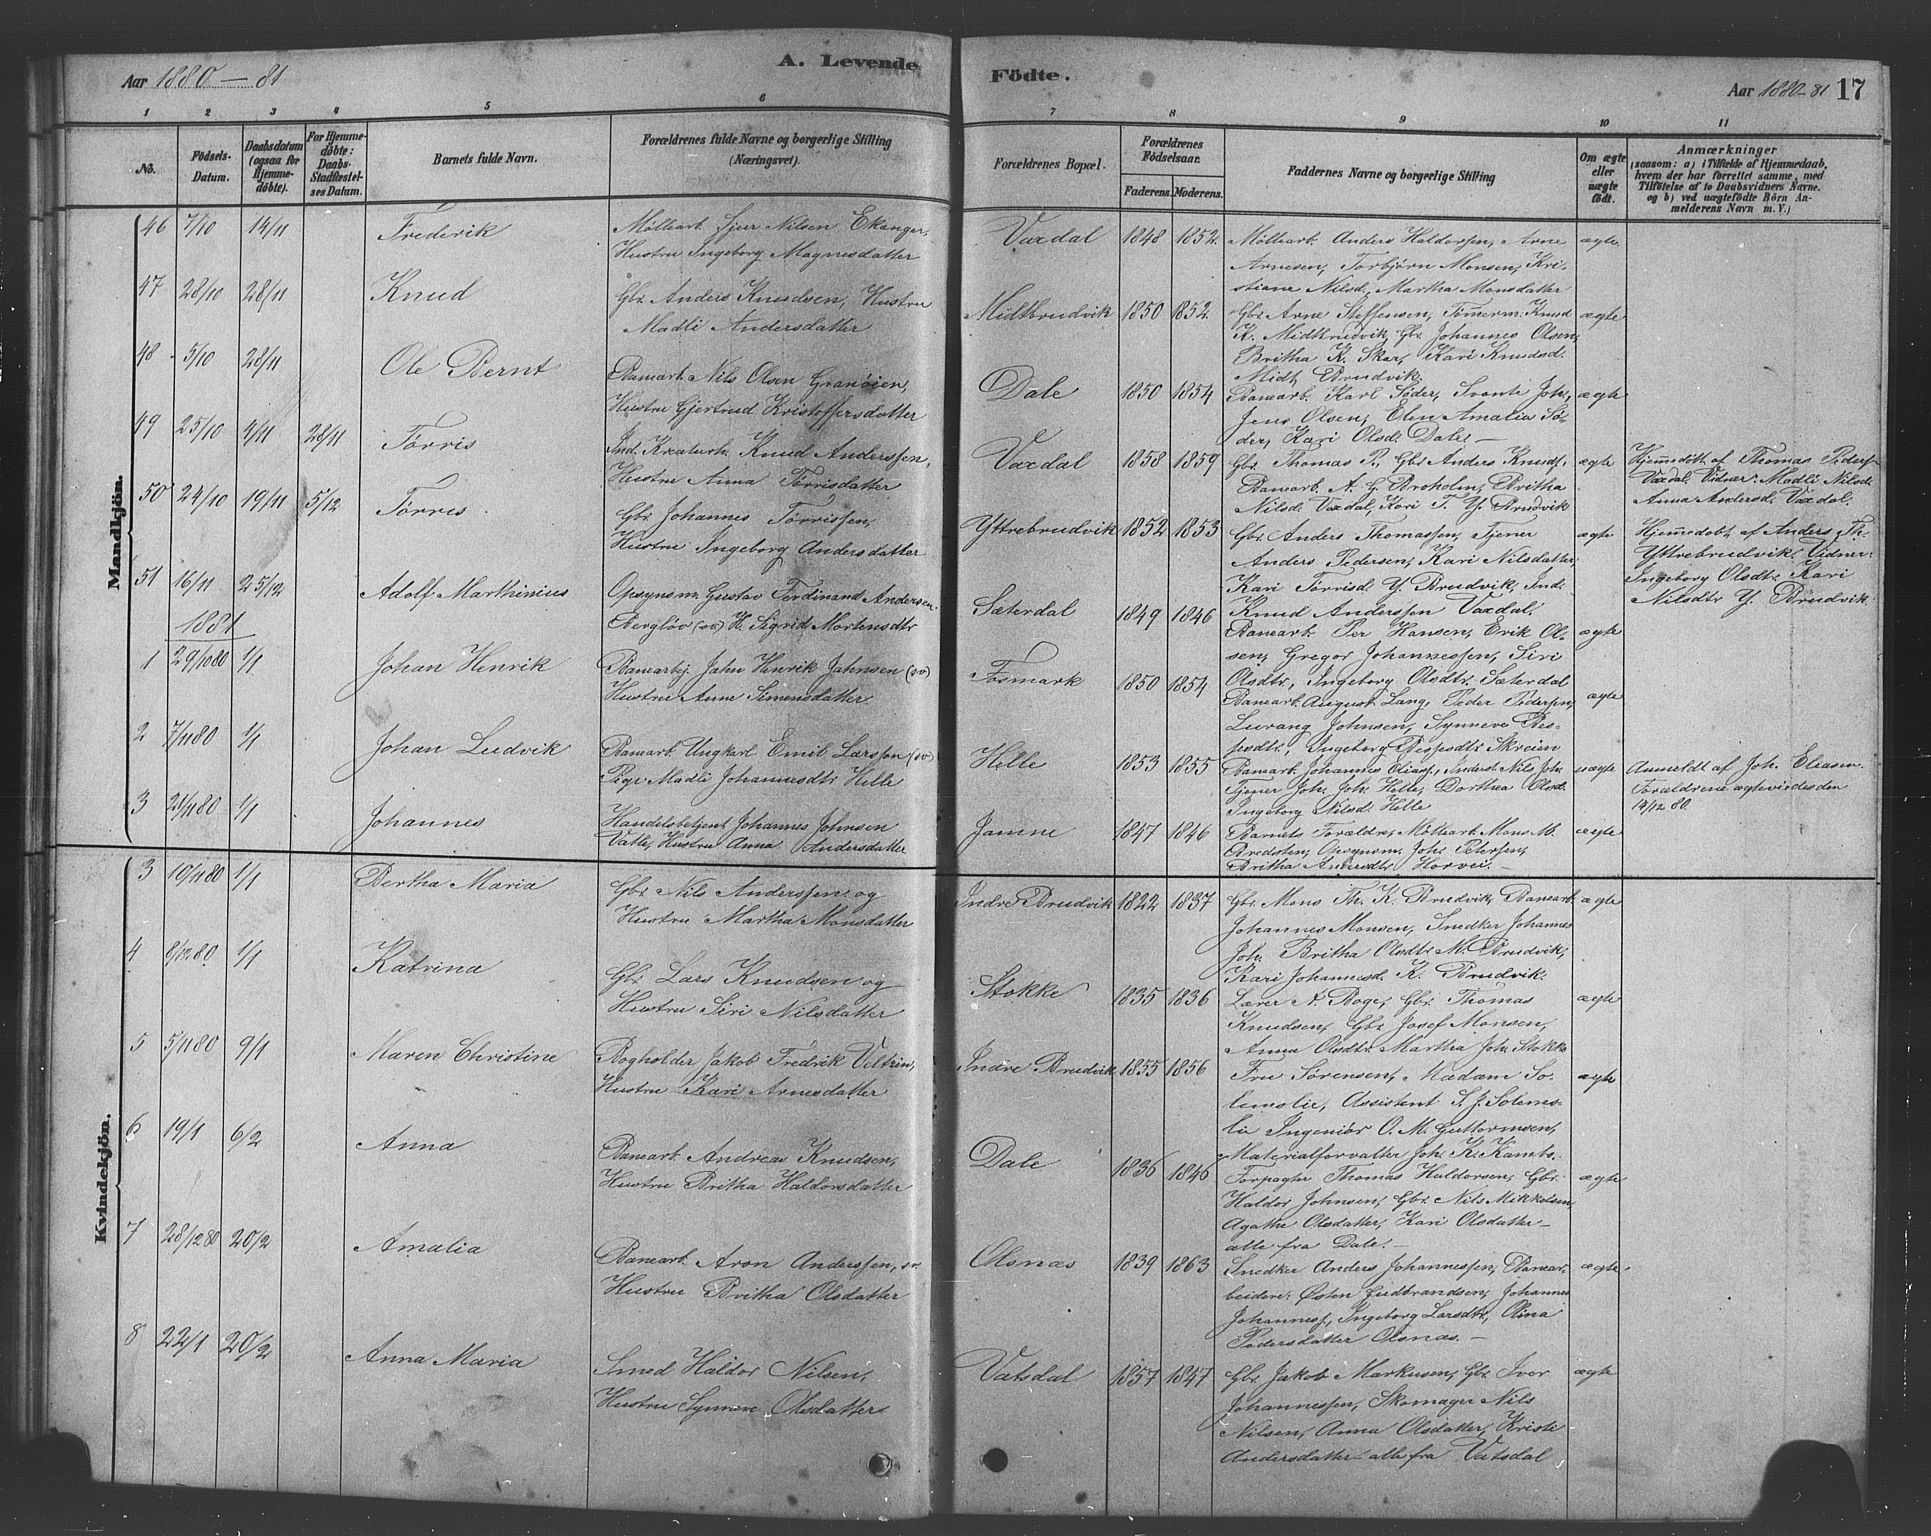 Aar 1880 — 81
A. Levende
Födte.
Aar 1880-81
17
1 2 3 4 5 6 7 8 9 10 11
No.
Födsels-
Datum.
Daabsdatum
(ogsaa for
Hjemme-
döbte).
For Hjemme-
döbte:
Daabs-
Stadfæstel-
ses Datum.
Barnets fulde Navn.
Forældrenes fulde Navne og borgerlige Stilling
(Næringsvei).
Forældrenes Bopæl.
Forældrenes
Födselsaar.
Faderens. Moderens.
Faddernes Navne og borgerlige Stilling
Om ægte
eller
uægte
født.
Anmærkninger
(saasom: a) i Tilfælde af Hjemmedaab,
hvem der har forrettet samme, med
Tilföielse af to Daabsvidners Navne.
og b) ved uægtefödte Börn An-
melderens Navn m. V.)
Mandkjön.
46 7/10 14/11 Frederik
Møllearb. Sjur Nilsen Ekanger,
Hustru Ingeborg Magnesdatter
Vaxdal 1848 1852.
Møllearb. Anders Haldorsen, Arne
Arnesen, Torbjørn Monsen, Kri-
stiane Nilsd., Martha Monsdatter
ægte.
47 28/10 28/11 Knud
Gbr. Anders Knudsen, Hustru
Madli Andersdatter
Midtbrudvik 1850 1852.
Gbr. Arne Steffensen, Tømerm. Knud
K. Midtbrudvik, Gbr. Johannes Olsen,
Britha K. Skar, Kari Knudsd.
Midt Brudvik.
ægte
48 5/10 28/11 Ole Bernt
Banearb. Nils Olsen Granøien,
Hustru Gjertrud Kristoffersdatter
Dale 1850 1854
Banearb. Karl Söder, Svente Joh.,
Jens Olsen, Elen Amalia Sö-
der, Kari Olsd. Dale. —
ægte
49 25/10 4/11 28/11 Tørris
Ind. Kreaturh. Knud Anderssen,
Hustru Anna Tørrisdatter
Vaxdal 1858 1859
Gbr. Thomas P., Gbr. Anders Knuds.,
Banearb. A. G. Broholm, Britha
Nilsd. Vaxdal, Kari T. Y. Brudvik
ægte
Hjemmedøbt af Thomas Peders.
Vaxdal. Vidner: Madli Nilsd.
Anna Andersd. Vaxdal.
50 24/10 19/11 5/12 Tørris
Gbr. Johannes Tørrissen,
Hustru Ingeborg Andersdatter
Yttrebrudvik 1852 1853
Gbr. Anders Thomassen, Tjener
Anders Pedersen, Kari Nilsdatter,
Kari Tørrisd. Y. Brudvik, Ind.
Knud Anderssen Vaxdal.
ægte
Hjemmedøbt af Anders Th.
Yttrebrudvik. Vidner:
Ingeborg Olsdtr. Kari
Nilsdtr Y. Brudvik.
51 16/11 25/12 Adolf Marthinius
Opsynsm. Gustav Ferdinand Andersen
Bergløv (sv) H. Sigrid Mortensdtr
Sæterdal 1849 1846
Banearb. Per Hansen, Erik Ol-
sen, Gregor Johannessen, Siri
Olsdtr., Ingeborg Olsdtr. Sæterdal
ægte
1881
1 29/10 80 1/1 Johan Henrik
Banearbej. Jahn Henrik Jahnsen (sv)
Hustru Anne Simensdatter
Fosmark 1850 1854
Banearb. August Lang, Peder Pedersen,
Lurang Johnsen, Synneve Bes-
pesdtr., Ingeborg Bespesdtr. Skreien
ægte
2 7/11 80 1/1 Johan Ludvik
Banearb. Ungkarl Emil Larssen (sv)
Pige Madli Johannesdtr Helle
Helle 1853 1855
Banearb. Johannes Eliass., Inderst Nils Joh.
Tjener Joh. Joh. Helle, Dorthea Olsd.
Ingeborg Nilsd. Helle
uægte
Anmeldt af Joh. Eleasen
Forældrene ægteviedes den
14/12 80.
3 21/11 80 1/1 Johannes
Handelsbetjent Johannes Johnsen
Valle, Hustru Anna Andersdatter
Jamne 1847 1846
Barnets Forældre, Møllearb. Mons M.
Bredsten, Opsynsm. Joh. Petersen,
Britha Andersdtr. Horvei. —
ægte
Kvindekjön.
3 10/11 80 1/1 Bertha Maria
Gbr. Nils Anderssen og
Hustru Martha Monsdatter
Indre Brudvik 1822 1837
Gbr. Mons Th. K. Brudvik, Banearb.
Johannes Monsen, Snedker Johannes
Joh. Britha Olsdtr. M. Brudvik,
Kari Johannesd. K. Brudvik.
ægte
4 8/12 80 1/1 Katrina
Gbr. Lars Knudsen og
Hustru Siri Nilsdatter
Stokke 1835 1836
Lærer N. Boge, Gbr. Thomas
Knudsen, Gbr. Josef Monsen,
Anna Olsdtr. Martha Joh. Stokke
ægte
5 5/11 80 9/1 Maren Christine
Bogholder Jakob Fredrik Veltzin,
Hustru Kari Arnesdatter
Indre Brudvik 1855 1856
Fru Sørensen, Madam So-
lemslie, Assistent S. J. Solems-
lie Ingeniør O. M. Guttormsen,
Materialforvalter Joh. K. Kambs.
ægte
6 19/1 6/2 Anna
Banearb. Andreas Knudsen,
Hustru Britha Haldorsdatter
Dale 1836 1846
Forpagter Thomas Haldorsen, Gbr.
Haldor Johnsen, Gbr. Nils Mikkelsen,
Agathe Olsdatter, Kari Olsdatter —
alle fra Dale. —
ægte
7 28/12 80 20/2 Amalia
Banearb. Aron Anderssen, sv.
Hustru Britha Olsdatter
Olsnæs 1839 1863
Snedker Anders Johannessen, Banear-
beidere: Østen Gudbrandsen, Johannes
Johanness., Ingeborg Larsdtr, Olina
Pedersdatter Olsnæs. —
ægte.
8 22/1 20/2 Anna Maria
Smed Haldor Nilsen,
Hustru Synneve Olsdatter
Vatsdal 1857 1847
Gbr. Jakob Markusen, Gbr. Iver
Johannessen, Skomager Nils
Nilsen, Anna Olsdatter, Kristi
Andersdatter alle fra Vatsdal
ægte